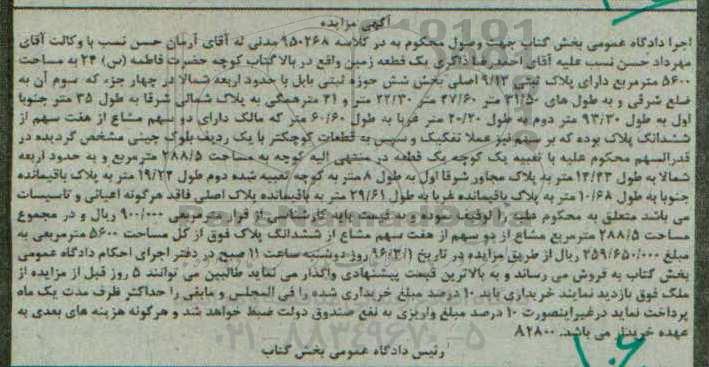 آگهی مزایده
اجرا دادگاه عمومی بخش گتاب جهت وصول محکوم به در کلاسه ۹۵۰۲۶۸ مدنی له آقای آرمان حسن نسب با وکالت آقای
مهرداد حسن نسب علیه آقای احمدرضا ذاکری یک قطعه زمین واقع در بالا گتاب کوچه حضرت فاطمه (س) ۲۴ به مساحت
۵۶۰۰ مترمربع دارای پلاک ثبتی ۹/۱۳ اصلی بخش شش حوزه ثبتی بابل با حدود اربعه شمالا در چهار جزء که سوم آن به
ضلع شرقی و به طول های ۳۱/۵۰ متر ۴۷/۶۰ متر ۲۲/۳۰ متر و ۲۱ متر همگی به پلاک شمالی شرقا به طول ۳۵ متر جنوبا
اول به طول ۹۳/۳۰ متر دوم به طول ۲۰/۲۰ متر غربا به طول ۶۰/۶۰ متر که مالک دارای دو سهم مشاع از هفت سهم از
ششدانگ پلاک بوده که بر سهم نیز عملا تفکیک و سپس به قطعات کوچکتر با یک ردیف بلوک چینی مشخص گردیده در
قدرالسهم محکوم علیه با تعبیه یک کوچه یک قطعه در منتهی الیه کوچه به مساحت ۲۸۸/۵ مترمربع و به حدود اربعه
شمالا به طول ۱۳/۴۳ متر به پلاک مجاور شرقا اول به طول ۸ متر به کوچه تعبیه شده دوم طول ۱۹/۲۴ متر به پلاک باقیمانده
جنوبا به طول ۱۰/۶۸ متر به پلاک باقیمانده غربا به طول ۲۹/۶۱ متر به باقیمانده پلاک اصلی فاقد هرگونه اعیانی و تاسیسات
می باشد متعلق به محکوم علیه را توقیف نموده و به قیمت پایه کارشناسی از قرار مترمربعی ۹۰۰/۰۰۰ ریال و در مجموع
مساحت ۲۸۸/۵ مترمربع مشاع از دو سهم از هفت سهم مشاع از ششدانگ پلاک فوق از کل مساحت ۵۶۰۰ مترمربعی به
مبلغ ۲۵۹/۶۵۰/۰۰۰ ریال از طریق مزایده در تاریخ ۹۶/۳/۱ روز دوشنبه ساعت ۱۱ صبح در دفتر اجرای احکام دادگاه عمومی
بخش گتاب به فروش می رساند و به بالاترین قیمت پیشنهادی واگذار می نماید طالبین می توانند ۵ روز قبل از مزایده از
ملک فوق بازدید نمایند خریداری باید ۱۰ درصد مبلغ خریداری شده را فی المجلس و مابقی را حداکثر ظرف مدت یک ماه
پرداخت نماید درغیراینصورت ۱۰ درصد مبلغ واریزی به نفع صندوق دولت ضبط خواهد شد و هرگونه هزینه های بعدی به
عهده خریدار می باشد. ۸۲۸۰۰
رئیس دادگاه عمومی بخش گتاب
۰۲۱-۸۸۳۴۹۶۷۰-۵